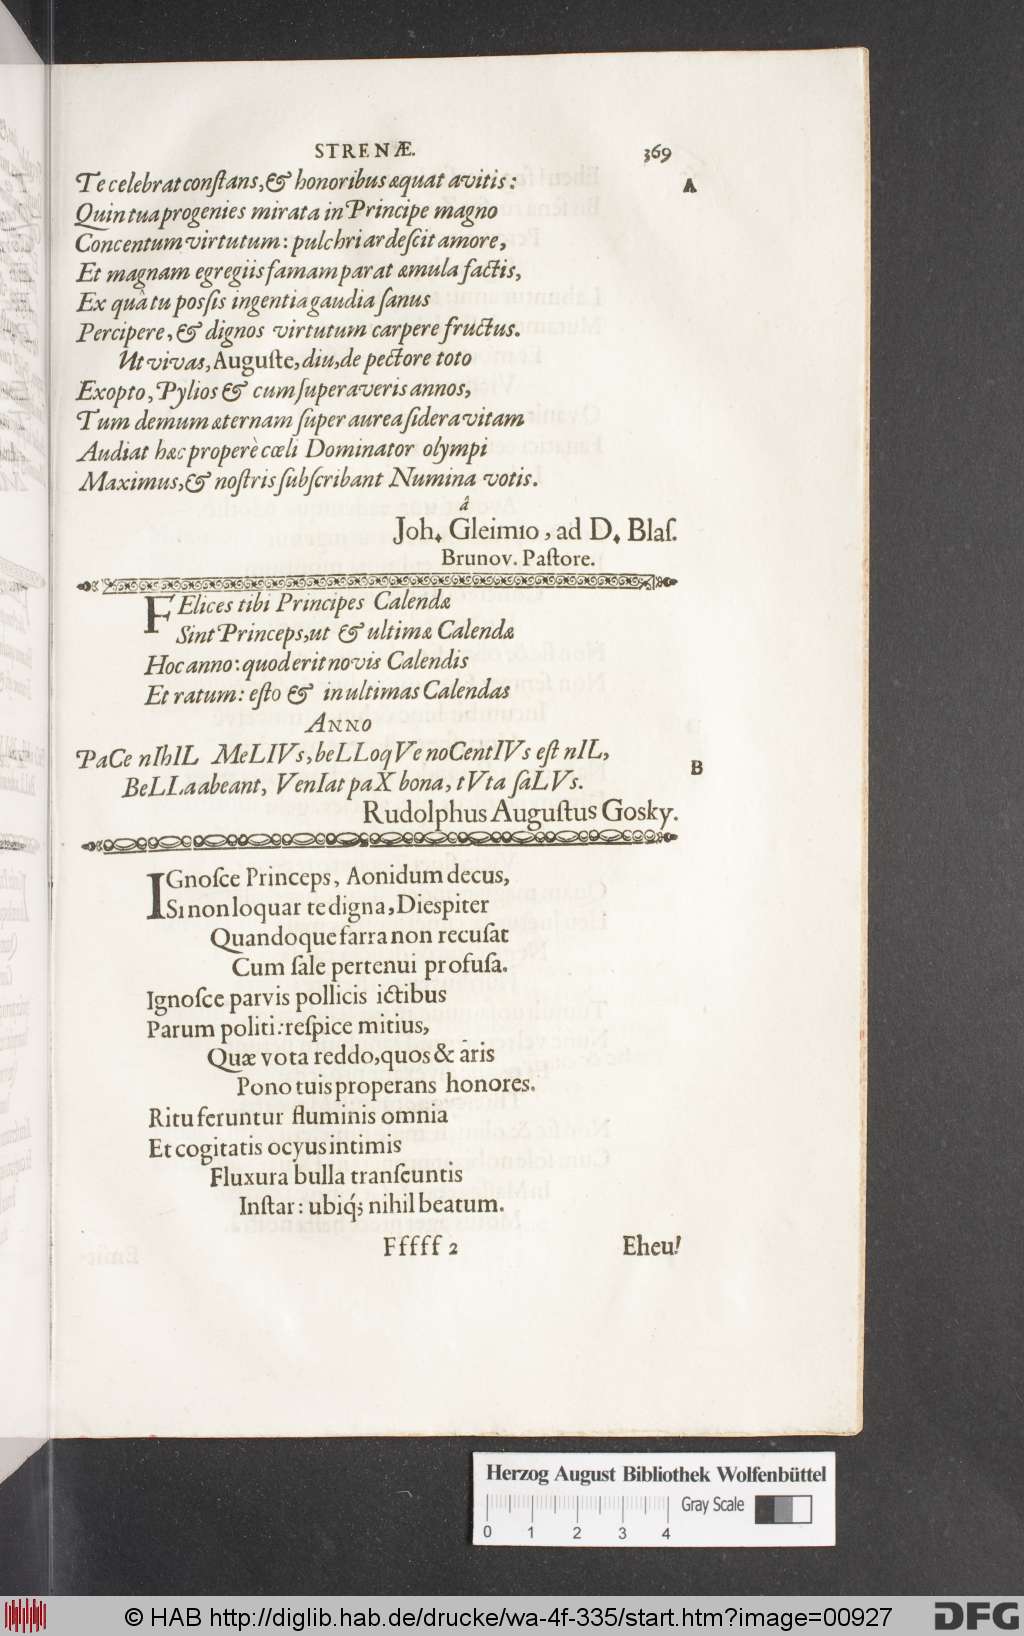 STRENÆ.
369
Te celebrat conſtans, & honoribus æquat avitis:
A
Quin tua progenies mirata in Principe magno
Concentum virtutum: pulchri ardeſcit amore,
Et magnam egregiis famam parat æmula factis,
Ex quâ tu poſsis ingentia gaudia ſanus
Percipere, & dignos virtutum carpere fructus.
Ut vivas, Auguſte, diu, de pectore toto
Exopto, Pylios & cum ſuperaveris annos,
Tum demum æternam ſuper aurea ſidera vitam
Audiat hæc properè cœli Dominator olympi
Maximus, & noſtris ſubſcribant Numina votis.
â
Joh. Gleimio, ad D. Blaſ.
Brunov. Paſtore.
FElices tibi Principes Calendæ
Sint Princeps, ut & ultimæ Calendæ
Hoc anno: quod erit novis Calendis
Et ratum: eſto & in ultimas Calendas
ANNO
PaCe nIhIL MeLIVs, beLLoqVe noCentIVs eſt nIL,
B
BeLLa abeant, VenIat paX bona, tVta ſaLVs.
Rudolphus Auguſtus Gosky.
IGnoſce Princeps, Aonidum decus,
Si non loquar te digna, Dieſpiter
Quandoque farra non recuſat
Cum ſale pertenui profuſa.
Ignoſce parvis pollicis ictibus
Parum politi: reſpice mitius,
Quæ vota reddo, quos & āris
Pono tuis properans honores.
Ritu feruntur fluminis omnia
Et cogitatis ocyus intimis
Fluxura bulla tranſeuntis
Inſtar: ubiq́; nihil beatum.
Fffff 2
Eheu!
Herzog August Bibliothek Wolfenbüttel
Gray Scale
0 1 2 3 4
© HAB http://diglib.hab.de/drucke/wa-4f-335/start.htm?image=00927
DFG